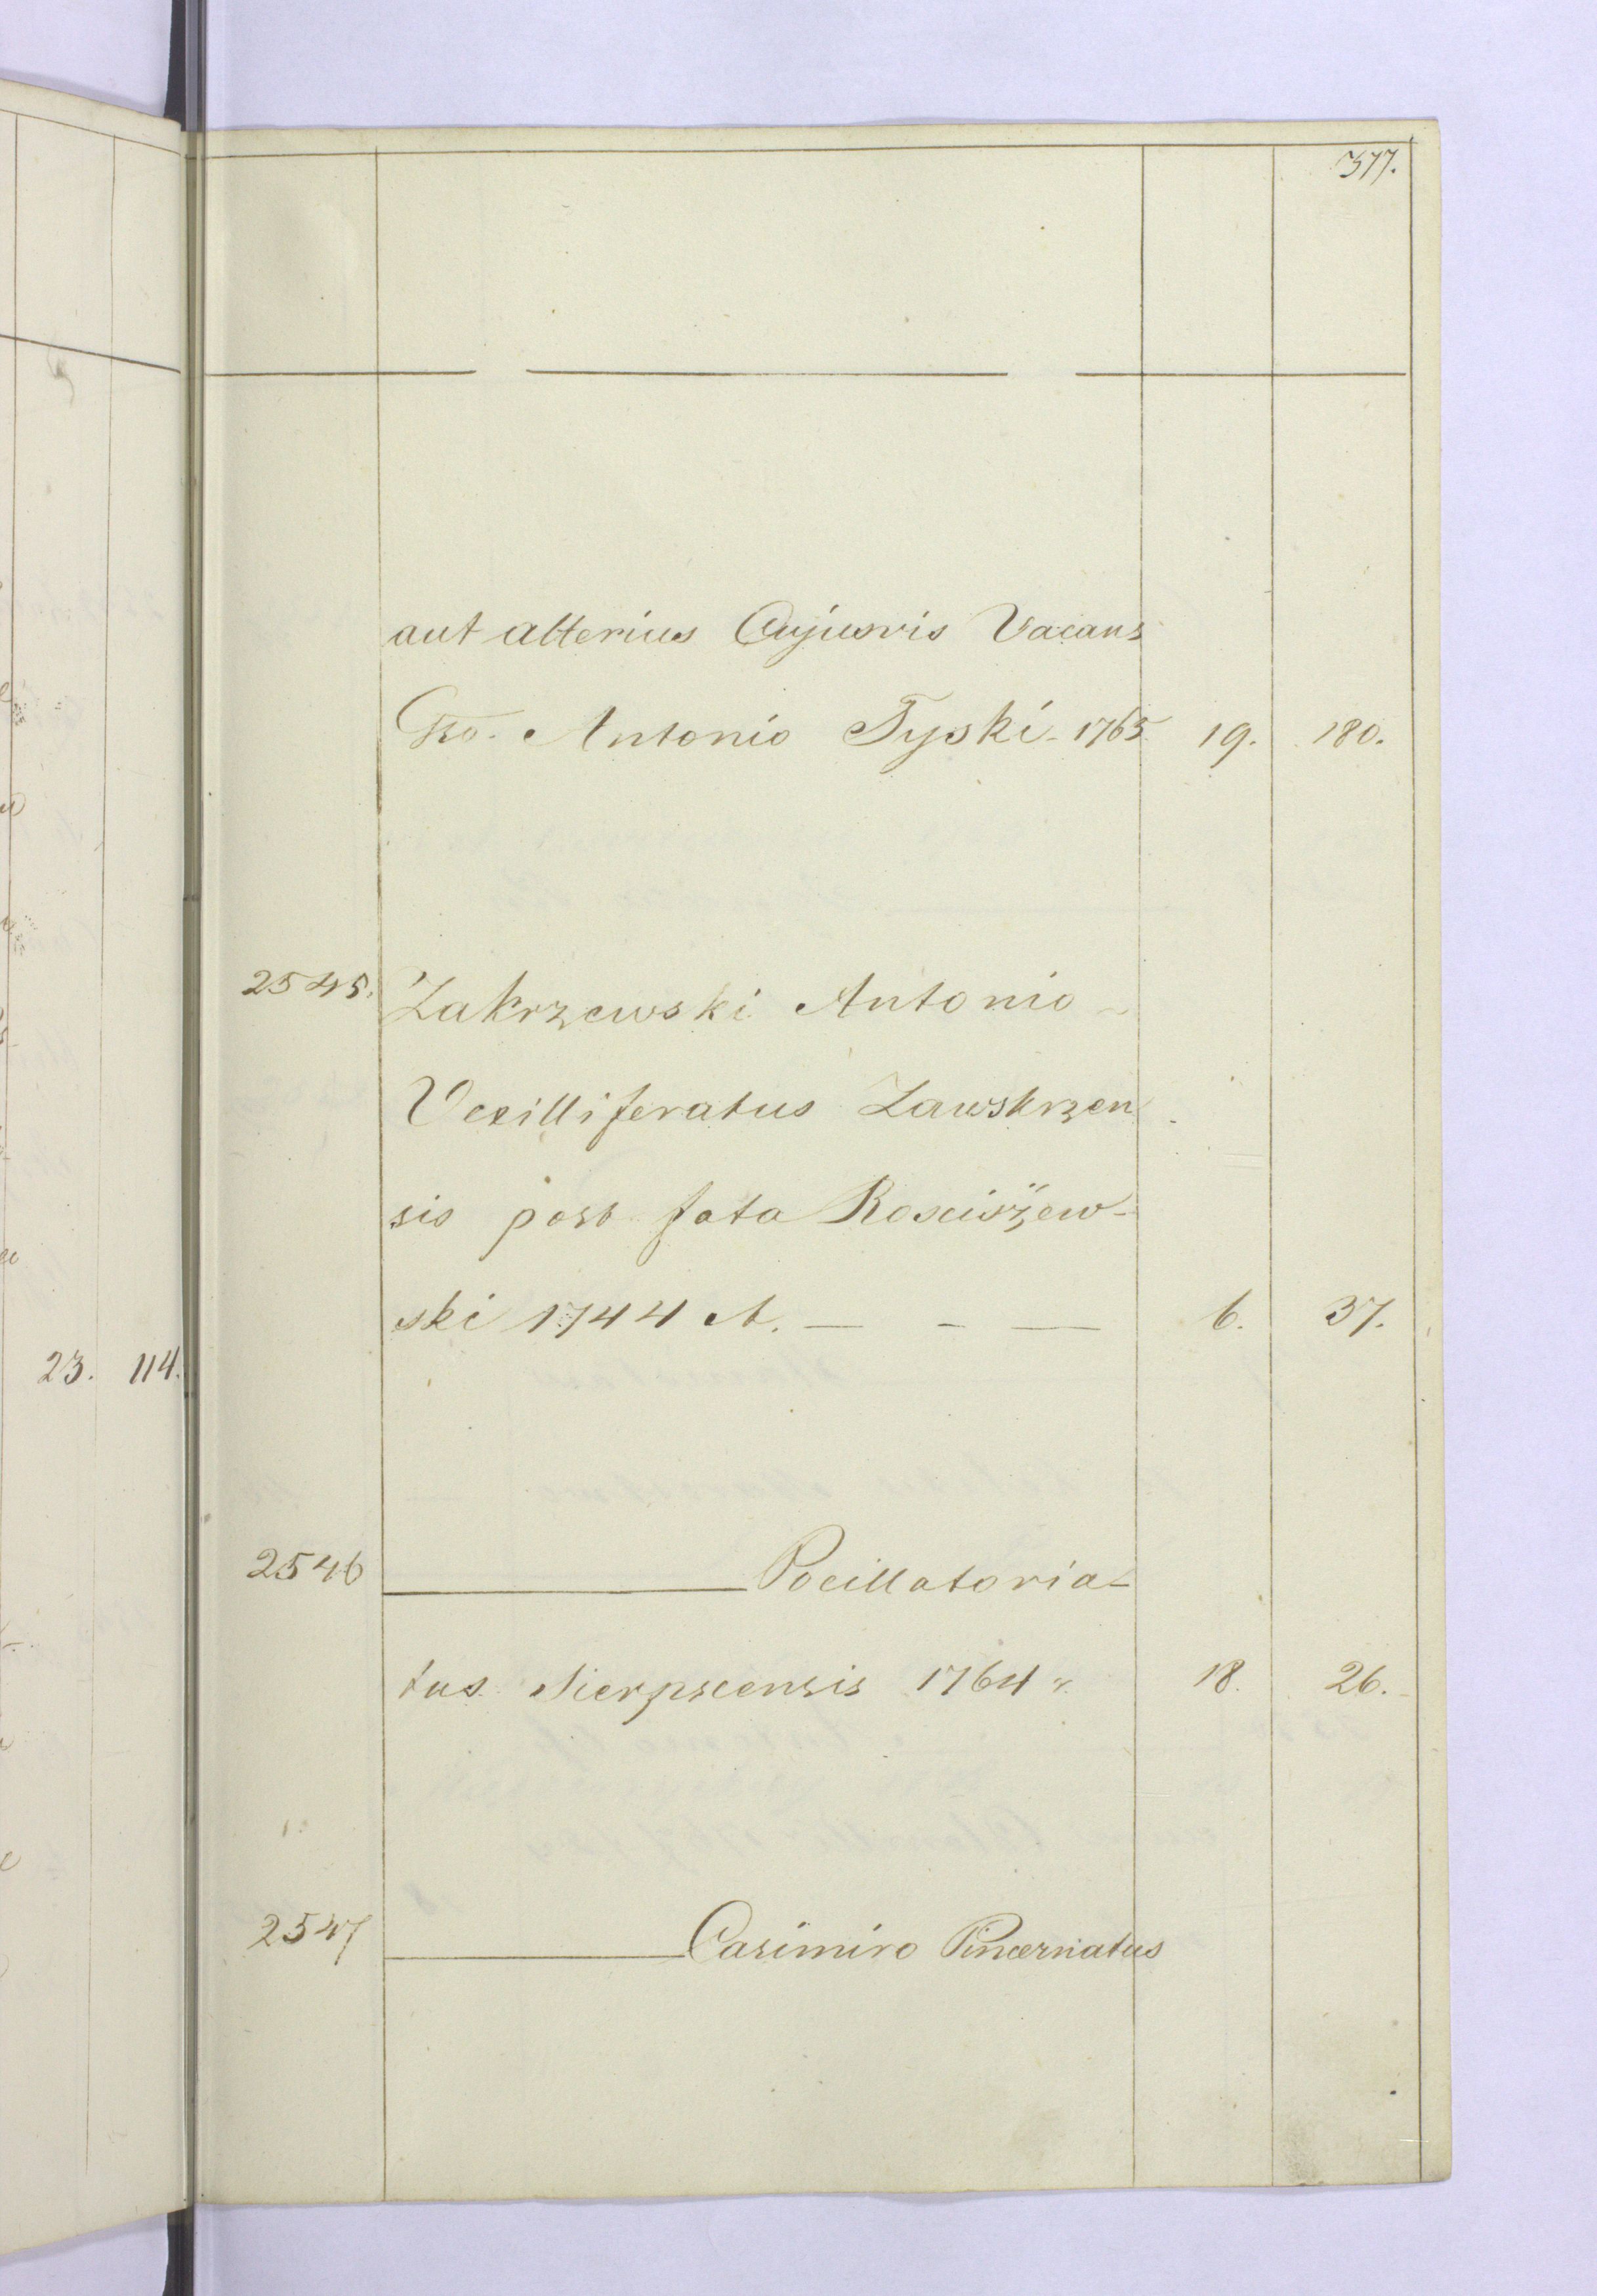 377.
aut alterius Cujusvis Vacans
Gso. Antonio Tyski - 1765 19. 180.
2545. Zakrzewski Antonio -
Vexilliferatus Zawskrzen
sis post fata Rosciszew-
ski 1744 A. — - — 6. 37.
23. 114.
2546 — Pocillatoria-
tus Sierpscensis 1764 r. 18. 26.
2547 — Casimiro Pincernatus